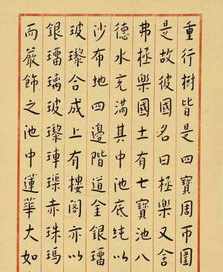 重行樹皆是四寶周帀圍
是故彼國名曰極樂又舍
弗極樂國土有七寶池八
德水充滿其中池底純以
沙布地四邊階道金銀瑠
玻瓈合成上有樓閣亦以
銀瑠璃玻瓈硨磲赤珠瑪
而嚴飾之池中蓮華大如